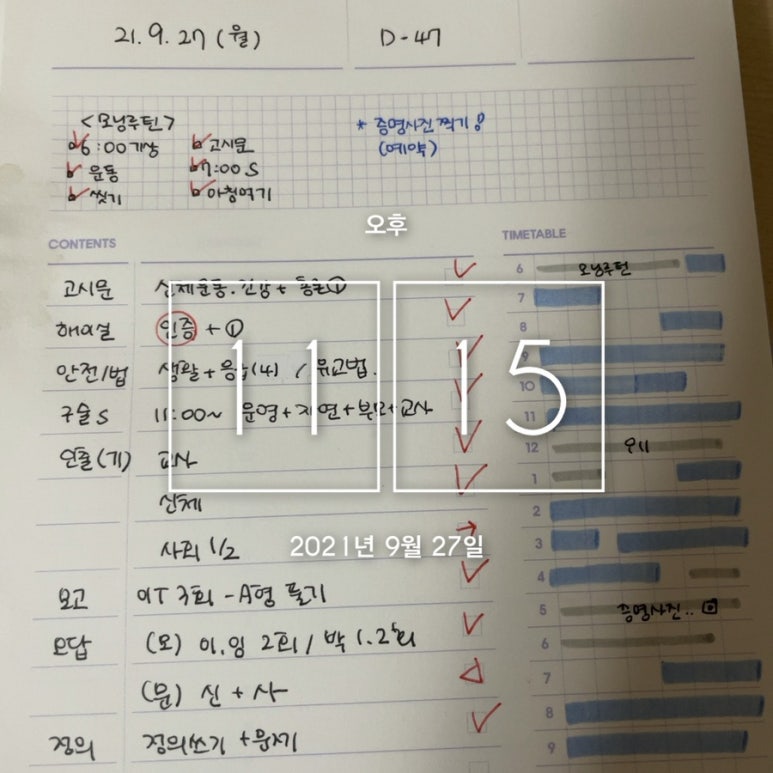 21.9.27 (월) D-47
<모닝루틴>
6:00 기상 고시문
운동 7:00 S
씻기 아침먹기
* 증명사진 찍기!
(예약)
오후
11 15
2021년 9월 27일
CONTENTS
고시문 신체운동.건강 +
해설 인증 + ①
안전/법 생활 + (4) / 유교법.
구술S 11:00~ 운영+자연+부모+교사
인출(기) 교사
신체
사회 1/2
모고 3회 - A형 풀기
오답 (모) 이.임 2회 / 박 1.2회
(문) 신 + 사
정의 정의쓰기 + 문제
TIMETABLE
6 모닝루틴
7
8
9
10
11
12
1
2
3
4
5 증명사진..
6
7
8
9